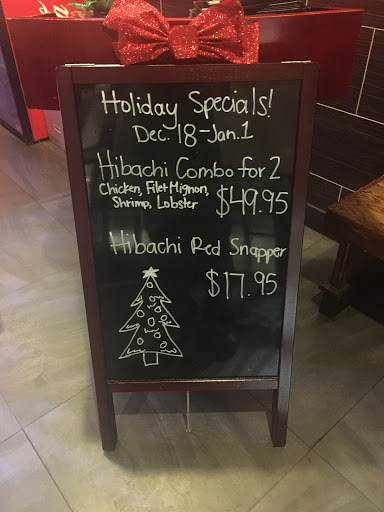 Holiday Specials!
Dec. 18-Jan. 1
Hibachi Combo for 2
Chicken, Filet Mignon,
Shrimp, Lobster $49.95
Hibachi Red Snapper
$17.95